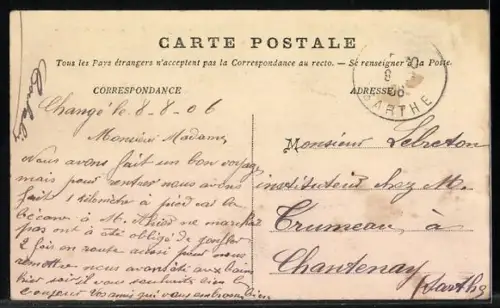 CARTE POSTALE
Tous les Pays étrangers n'acceptent pas la Correspondance au recto. — Se renseigner à la Poste.
CORRESPONDANCE
ADRESSE
8
06
SARTHE
Changé le 8-8-06
Monsieur Madame,
Nous avons fait un bon voyage
mais pour rentrer nous avons
fait 1 kilomètre à pied car la
bécane à M. ne marchait
pas ont à été obligé de gonfler
2 fois en route aussi pour nous
remettre nous avons été aux bains
hier soir je vous souhaite bien le
bonjour Vos amis qui vous embrasse bien
Monsieur Lebreton
instituteur chez M.
Trumeau à
Chantenay
Sarthe